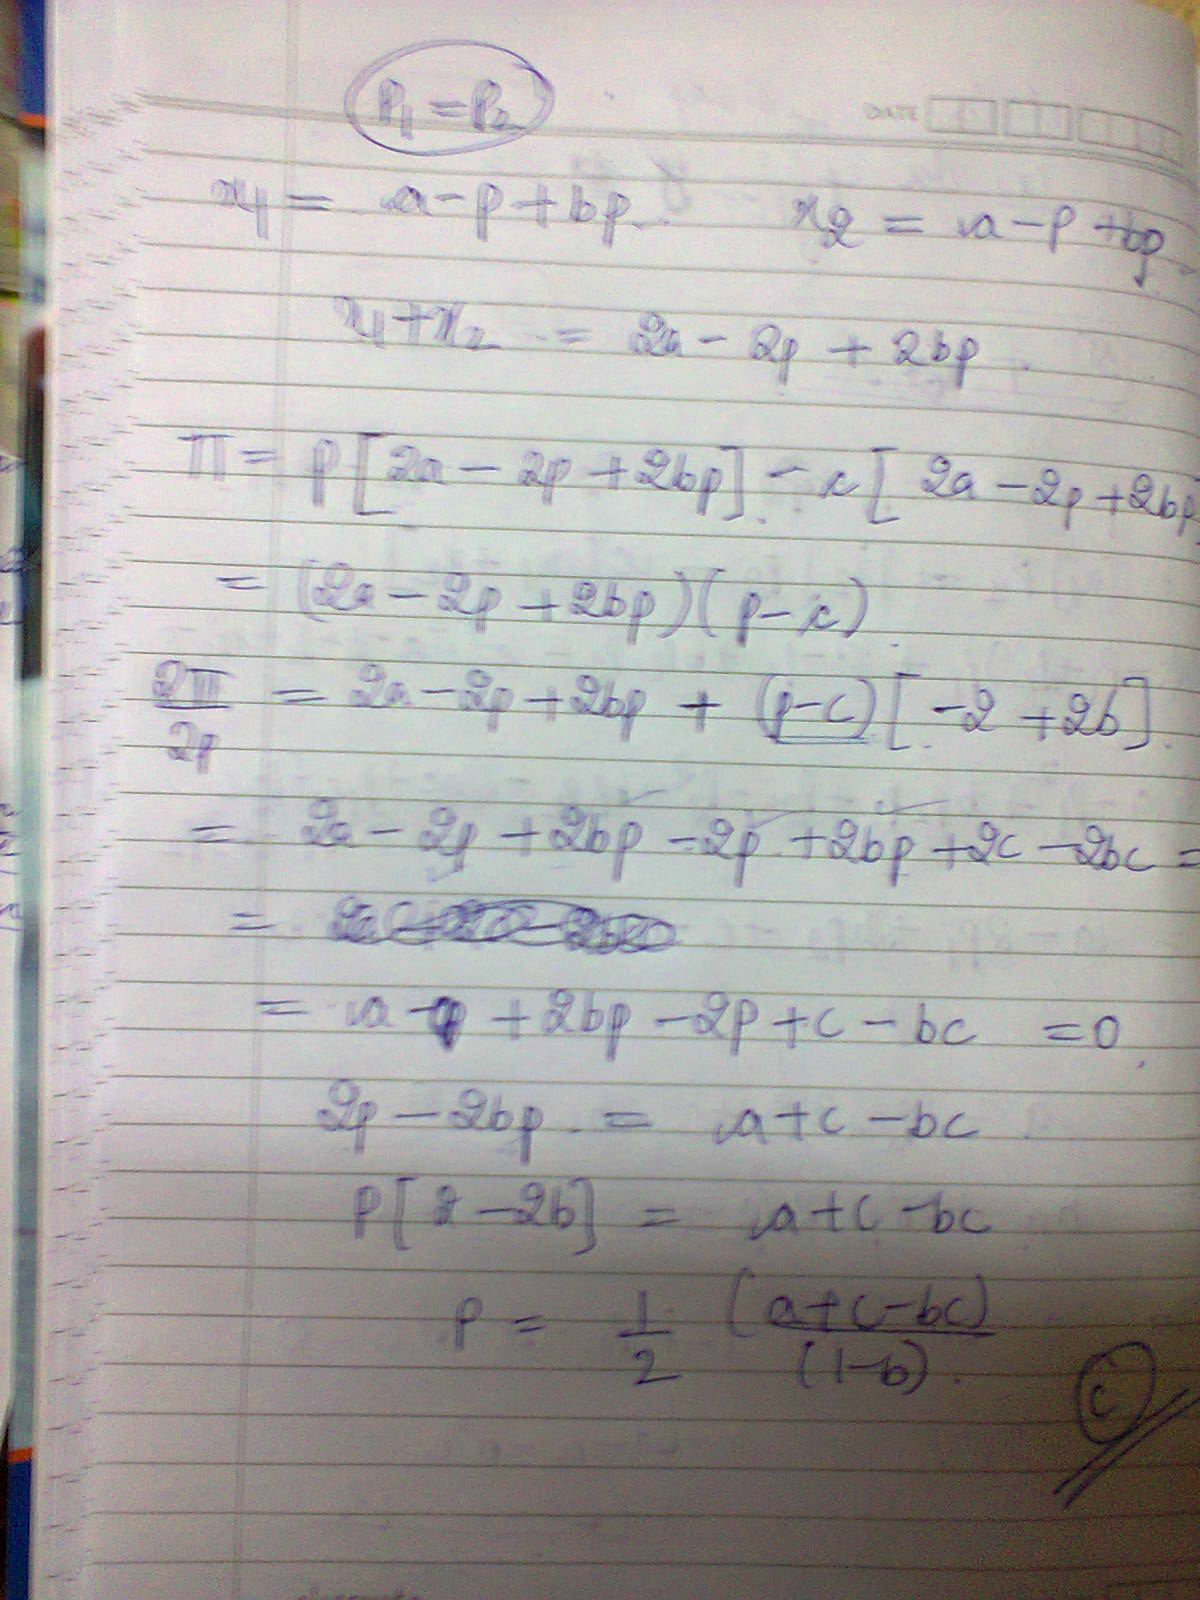 P₁ = P₂
DATE
x₁ = a - p + bp x₂ = a - p + bp
x₁ + x₂ = 2a - 2p + 2bp
π = p[2a - 2p + 2bp] - c[2a - 2p + 2bp]
= (2a - 2p + 2bp)(p - c)
∂π/∂p = 2a - 2p + 2bp + (p - c)[-2 + 2b].
= 2a - 2p + 2bp - 2p + 2bp + 2c - 2bc =
=
= a + 2bp - 2p + c - bc = 0
2p - 2bp = a + c - bc
P[2 - 2b] = a + c - bc
P = 1/2 (a + c - bc)/(1 - b).
C